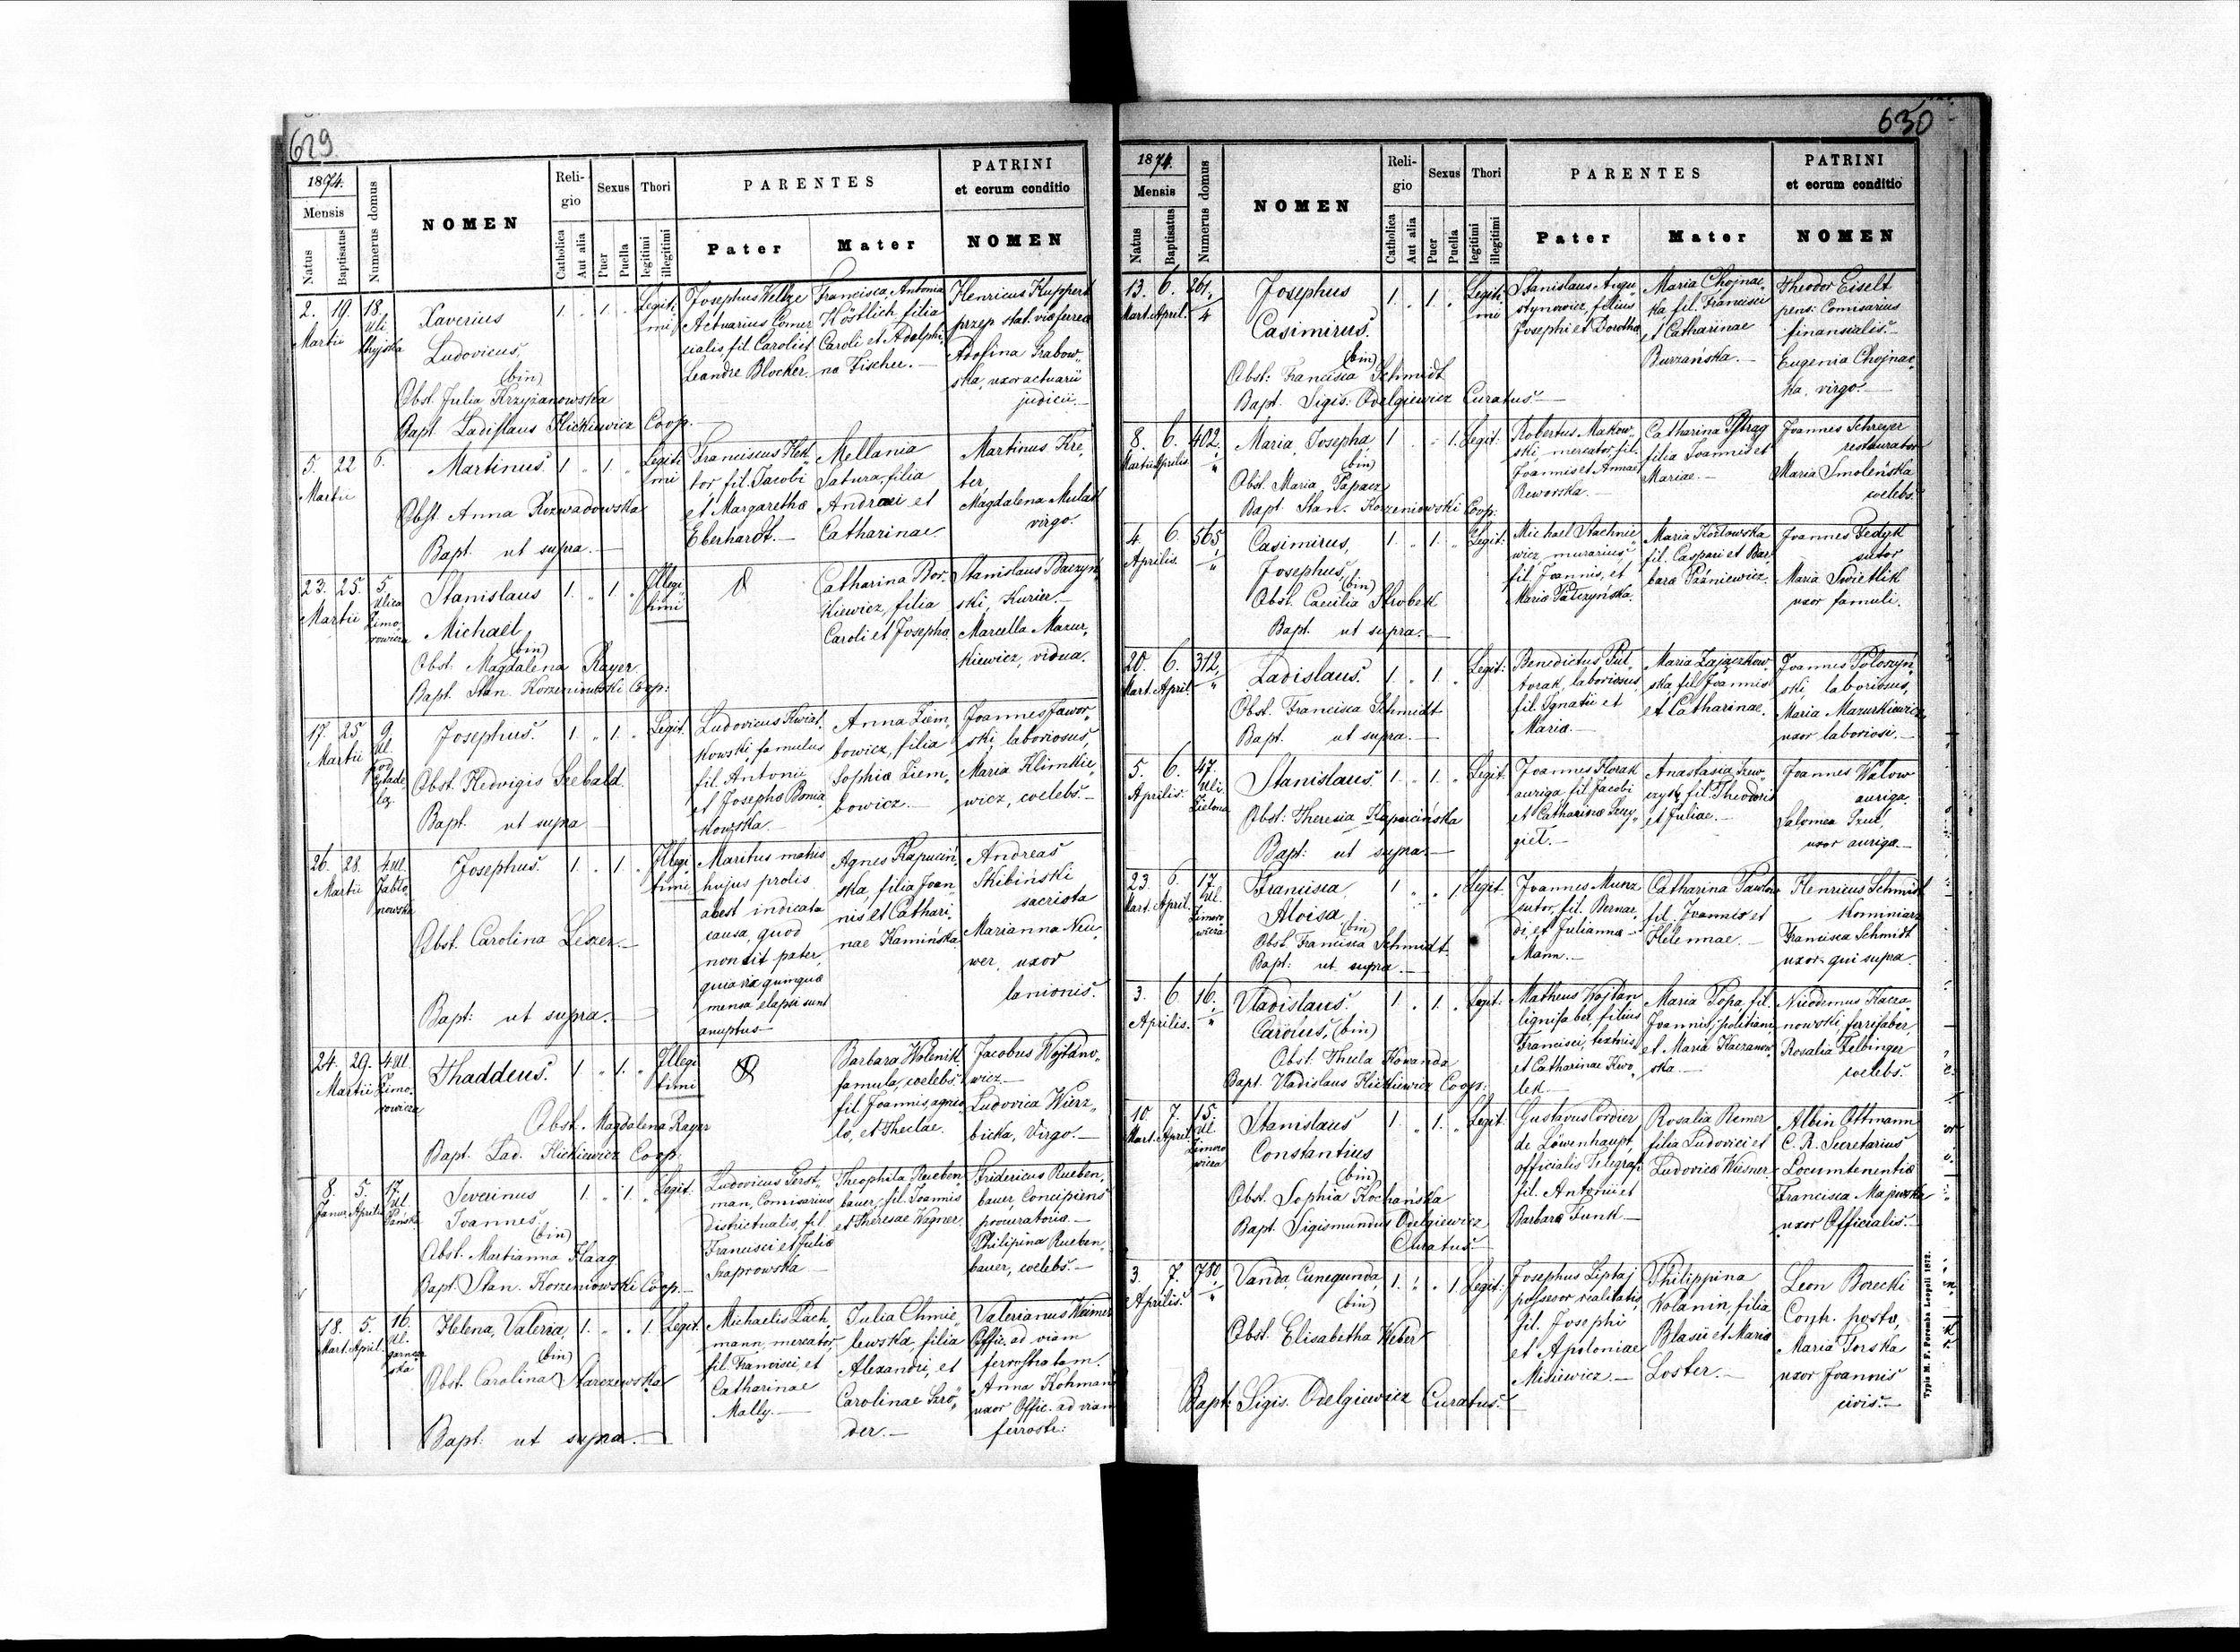 629
1874.
Mensis
Natus
Baptisatus
Numerus domus
NOMEN
Religio
Catholica
Aut alia
Sexus
Puer
Puella
Thori
legitimi
illegitimi
PARENTES
Pater
Mater
PATRINI
et eorum conditio
NOMEN
2. 19. 18.
Martii
Xaverius
Ludovicus,
(bin)
Obst. Julia Krzyżanowska
Bapt. Ladislaus Hickiewicz Coop.
1. " 1. " Legiti
mi
Josephus
Actuarius Comer
cialis, fil. Caroli et
Leandre Blocker.
Francisca, Antonia
Köstlich, filia
Caroli et Adolphi
na Fischer.
Henricus Kuppert
przep. stat. viæ ferreæ
Adofina Grabow
ska, uxor actuarii
judicii.
5. 22 6.
Martii
Martinus.
Obst. Anna Rozwadowska
Bapt. ut supra.
1 " 1. " Legiti
mi
Franciscus Hek
tor, fil. Jacobi
et Margarethæ
Eberhardt.
Mellania
Satura, filia
Andreæ et
Catharinae.
Martinus Kre
ter,
Magdalena Mulard
virgo.
23. 25. 5.
Martii
Ulica
Zimo
rowicza
Stanislaus
Michael
(bin)
Obst. Magdalena Rayer
Bapt. Stan. Korzeniowski Coop:
1. " 1. " Illegi
timi
Catharina Bor
kiewicz, filia
Caroli et Josepha
Stanislaus Baczyń
ski, Kurier.
Marcella Mazur
kiewicz, vidua.
17. 25 9.
Martii
Ul.
Josephus.
Obst. Hedvigis Seebald.
Bapt. ut supra
1. " 1. " Legit.
Ludovicus Kwiat
kowski, famulus
fil. Antonii
et Josepha Bonia
kowska
Anna Ziem
bowicz, filia
Sophiæ Ziem
bowicz.
Joannes Jawor
ski, laboriosus,
Maria Klimkie
wicz, coelebs.
26. 28. 4.Ul.
Martii
Jabło
nowska
Josephus.
Obst. Carolina Leszer.
Bapt: ut supra.
1. " 1. " Illegi
timi
Maritus matris
hujus prolis
abest indicata
causa, quod
non sit pater,
quia vix quinque
mensa elapsi sunt
a nuptus
Agnes Kapuciń
ska, filia Joan
nis et Cathari
nae Kamińska
Andreas
Skibiński
sacrista
Marianna Neu
wer, uxor
lanionis.
24. 29. 4.Ul.
Martii
Zimo
rowicza
Thaddeus.
Obst. Magdalena Rayer
Bapt. Lad. Hickiewicz Coop.
1 " 1. " Illegi
timi
Barbara Wolenik
famula, coelebs.
fil. Joannis, agrico
lo, et Theclae.
Jacobus Wojtano
wicz.
Ludovica Wierz
bicka, Virgo.
8. 5. 17.
Januar. Aprilis
Ul.
Pańska
Severinus
Joannes.
(bin)
Obst. Marianna Haag
Bapt. Stan. Korzeniowski Coop.
1. " 1. " Legit.
Ludovicus Gerst
man, Comisarius
districtualis, fil.
Francisci et Juliæ
Szaprowska
Theophila Rueben
bauer, fil. Joannis
et Theresae Wagner.
Fridericus Rueben
bauer, Concipiens
procuratoriæ.
Philipina Rueben
bauer, coelebs.
18. 5. 16.
Mart. April.
Ul.
garncar
ska
Helena, Valeria,
(bin)
Obst. Carolina Starczewska
Bapt: ut supra.
1. " " 1. Legit.
Michaelis Lach
mann, mercator,
fil. Francisci, et
Catharinae
Mally.
Julia Chmie
lewska, filia
Alexandri, et
Carolinae Szrö
der.
Valerianus Weimer
Offic. ad viam
ferrostratam.
Anna Kohman
uxor Offic. ad viam
ferrostr:
630
1874.
Mensis
Natus
Baptisatus
Numerus domus
NOMEN
Religio
Catholica
Aut alia
Sexus
Puer
Puella
Thori
legitimi
illegitimi
PARENTES
Pater
Mater
PATRINI
et eorum conditio
NOMEN
13. 6. 261.
Mart. April. 4
Josephus
Casimirus.
(bin)
Obst: Francisca Schmidt
Bapt. Sigis. Odelgiewicz Curatus.
1. " 1. " Legiti
mi
Stanislaus Augu
stynowicz, filius
Josephi et Dorothæ
Maria Chojnac
ka, fil. Francisci
et Catharinae
Burzańska.
Theodor Eiselt
pens: Comisarius
finansialis.
Eugenia Chojnac
ka, virgo.
8. 6. 402.
Martii Aprilis. "
Maria, Josepha
(bin)
Obst. Maria Papacz
Bapt. Stan. Korzeniowski Coop.
1 " " 1. Legit:
Robertus Makow
ski, mercator, fil.
Joannis et Annæ
Reworska.
Catharina Pstrag
filia Joannis et
Mariae.
Joannes Schreyer
restaurator
Maria Smoleńska
coelebs.
4. 6. 565.
Aprilis. "
Casimirus,
Josephus,
(bin)
Obst. Caecilia Strobek
Bapt. ut supra.
1. " 1. " Legit:
Michael Stachnie
wicz, murarius,
fil. Joannis, et
Mariæ Palczyńska.
Maria Kozłowska
fil. Caspari et Bar
bara Paśniewicz.
Joannes Gedyk
sutor
Maria Swietlik
uxor famuli.
20. 6. 312.
Mart. April. "
Ladislaus.
Obst. Francisca Schmidt
Bapt. ut supra.
1. " 1. " Legit:
Benedictus Puł
torak, laboriosus,
fil. Ignatii et
Maria.
Maria Zajączkow
ska, fil. Joannis
et Catharinae.
Joannes Połoszyń
ski, laboriosus,
Maria Mazurkiewicz,
uxor laboriosi.
5. 6. 47.
Aprilis.
Uli.
Zielona
Stanislaus.
Obst: Theresia Kapucińska
Bapt: ut supra.
1. " 1. " Legit:
Joannes Florak
auriga, fil. Jacobi
et Catharinæ Szcy
gieł.
Anastasia Szew
czyk, fil. Theodoris
et Juliae.
Joannes Walow
auriga.
Salomea Szul,
uxor auriga.
23. 6. 17.
Mart. April.
Ul.
Zimoro
wicza
Francisca,
Aloisa
(bin)
Obst. Francisca Schmidt.
Bapt: ut supra.
1 " " 1 Legit:
Joannes Munz
sutor, fil. Bernar
di, et Julianna
Mann.
Catharina Pawlow
fil. Joannis et
Helennae.
Henricus Schmidt
Kominiarz
Francisca Schmidt
uxor qui supra.
3. 6. 16.
Aprilis. "
Vladislaus.
Carolus, (bin)
Obst. Thecla Kowanda
Bapt. Vladislaus Hickiewicz Coop:
1. " 1. " Legit:
Matheus Wojtan
lignifaber, filius
Francisci, textris
et Catharinae Kwo
lek.
Maria Popa, fil.
Joannis, politiani
et Maria Kaczanow
ska.
Nicodemus Kacza
nowski, ferrifaber,
Rosalia Felbinger
coelebs.
10 7. 15.
Mart. April.
Ul
Zimoro
wicza
Stanislaus
Constantius
(bin)
Obst. Sophia Kochańska
Bapt. Sigismundus Odelgiewicz
Curatus.
1. " 1. " Legit:
Gustavus Cordier
de Löwenhaupt,
officialis Telegraf:
fil. Antonii et
Barbara Funk
Rosalia Remer
filia Ludovici et
Ludovica Wiesner.
Albin Ottmann
C. R. Secretarius
Locumtenentiæ
Francisca Majewska
uxor Officialis.
3. 7. 780
Aprilis. "
Vanda, Cunegunda,
(bin)
Obst. Elisabetha Weber
Bapt: Sigis. Odelgiewicz Curatus.
1. " " 1. Legit:
Josephus Liptaj
possesor realitatis,
fil. Josephi
et Apoloniae
Mikiewicz.
Philippina
Wolanin, filia
Blasii et Maria
Loster.
Leon Borecki
Contr. posto,
Maria Torska
uxor Joannis
civis.
Typis M. F. Poremba Leopoli 1872.